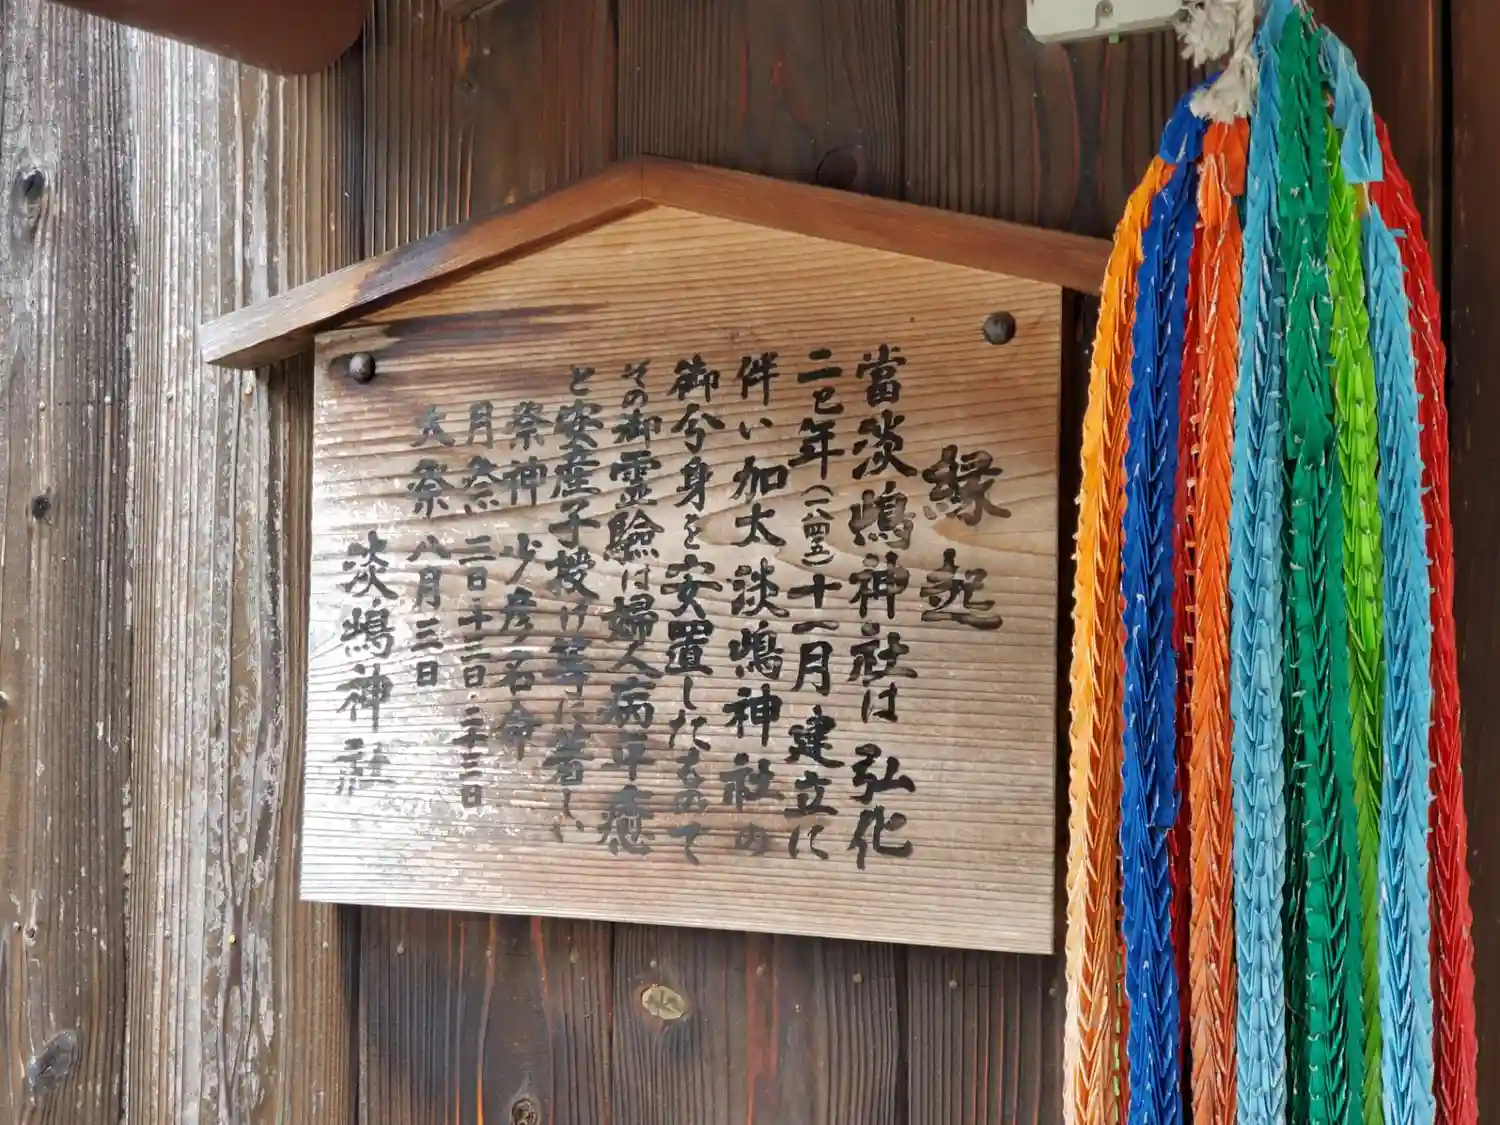 縁起
當淡嶋神社は 弘化
二巳年(一八四五)十一月 建立に
伴い 加太 淡嶋神社の
御分身を安置したものて
その御霊驗は婦人病平癒
と安産子授け等に著しい
祭神 少彦名命
月祭 三日・十三日・二十三日
大祭 八月三日
淡嶋神社